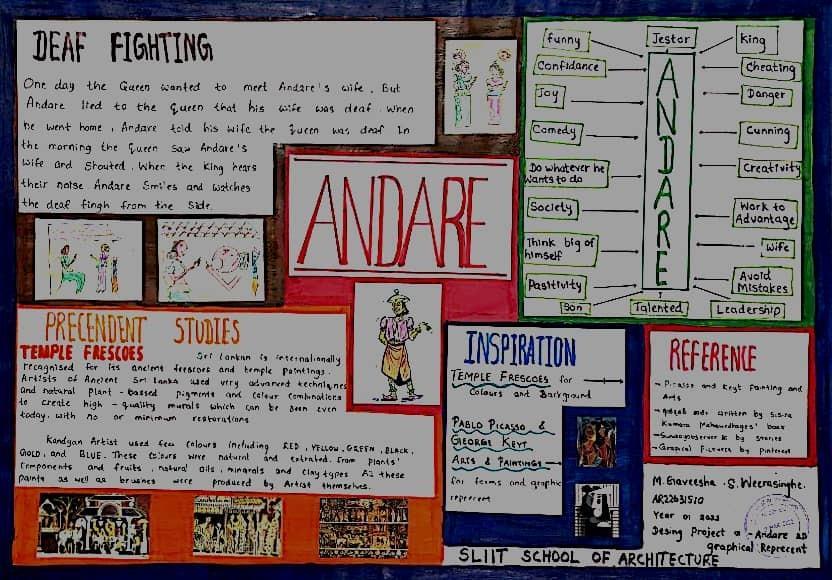 DEAF FIGHTING
One day the Queen wanted to meet Andare's wife. But
Andare lied to the Queen that his wife was deaf. When
he went home, Andare told his wife the Queen was deaf In
the morning the Queen saw Andare's
wife and Shouted. When the King hears
their noise Andare Smiles and watches
the deaf fingh from the side.
ANDARE
funny
Confidance
Joy
Comedy
Do whatever he
wants to do
Society
Think big of
himself
Pasitivity
Son
Jestor
ANDARE
Talented
King
Cheating
Danger
Cunning
Creativity
Work to
Advantage
Wife
Avoid
Mistakes
Leadership
PRECENDENT STUDIES
TEMPLE FRESCOES Sri Lankan is internationally
recognised for its ancient frescoes and temple paintings.
Artists of Ancient Sri Lanka used very advanced techniques
and natural plant - bassed pigments and colour combinations
to create high - quality murals which can be seen even
today, with no or minimum restorations.
Kandyan Artist used few colours including RED, YELLOW, GREEN, BLACK,
GOLD, and BLUE. These colours were natural and extrated. From plants'
components and fruits, natural oils, minarals and clay types All these
paints as well as brushes were produced by Artist themselves.
INSPIRATION
TEMPLE FRESCOES for
Colours and Background
PABLO PICASSO &
GEORGE KEYT
ARTS & PAINTINGS
for forms and graphic
reprecent
REFERENCE
- Picasso and Keyt Painting and
Arts
written by S.S.R
Kumara book
by stories
- Grapical Pictures by Pinterest
M. Gaveesha .S. Weerasinghe.
AR22631510
Year 01 2022
Desing Project 01 - Andare 2D
graphical Reprecent
SLIIT SCHOOL OF ARCHITECTURE